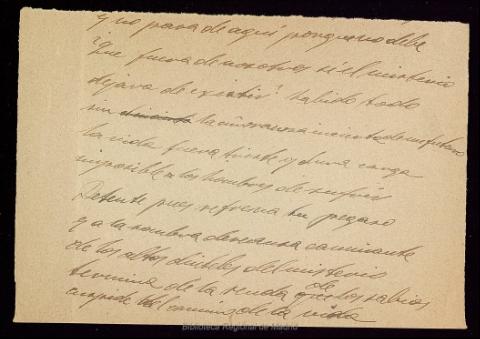 y no pasa de aquí porque no debe
¡Que fuera de nosotros si el misterio
dejara de existir! Sabido todo
sin la añoranza incierta de un futuro
la vida fuera triste y dura carga
imposible a los hombres de sufrir
Detente pues refrena tu pegaso
y a la sombra descansa caminante
de los altos dinteles del misterio
termina de la senda de los sabios
cuspide del camino de la vida
Biblioteca Regional de Madrid